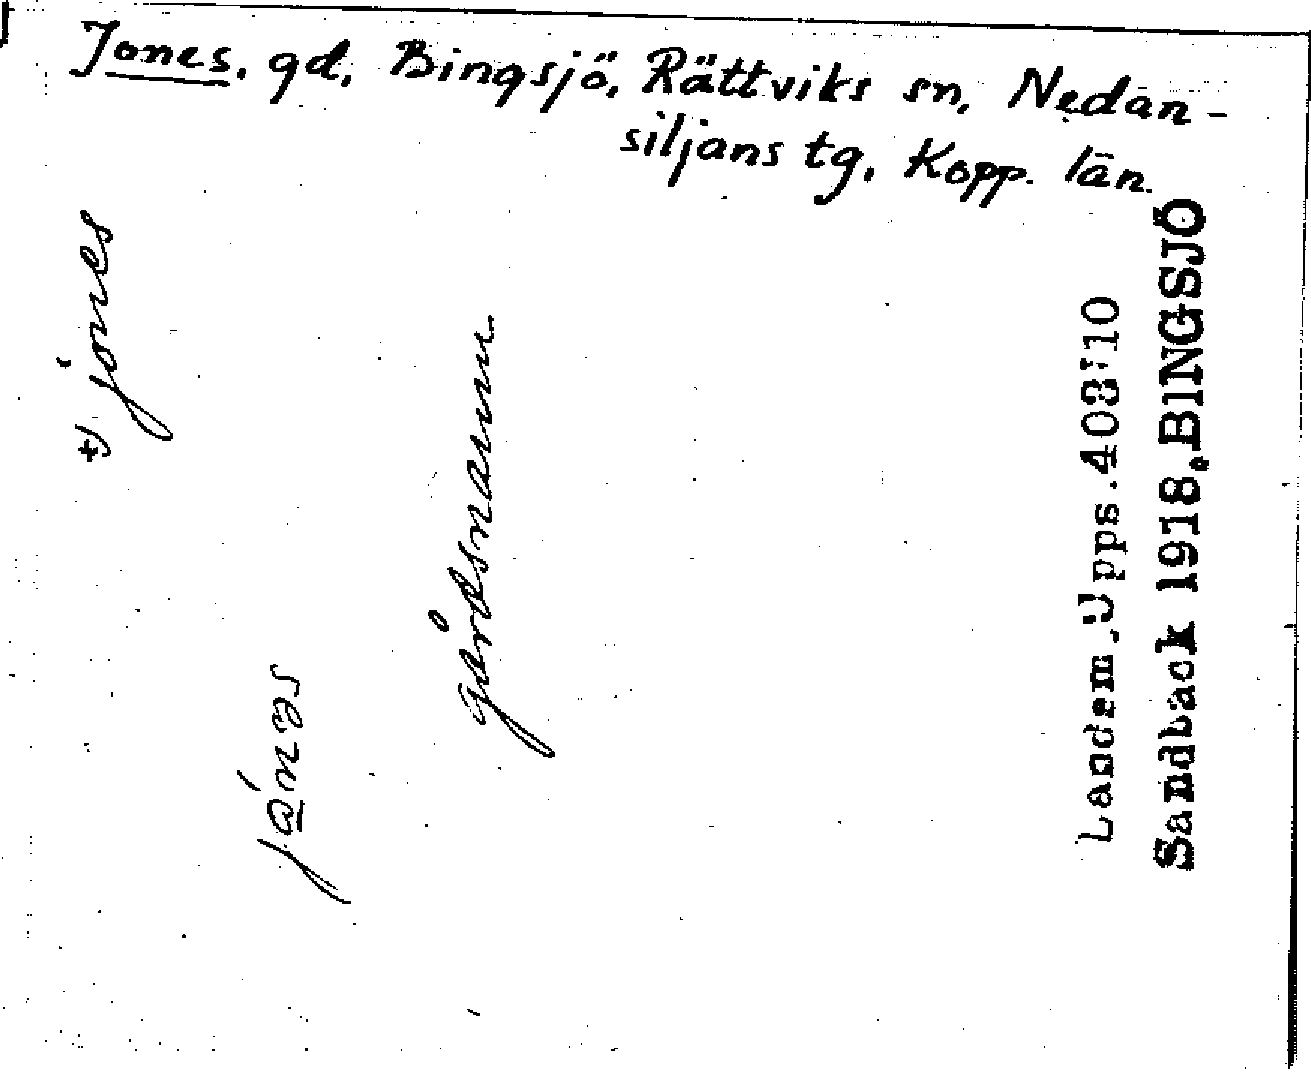 Jones. gd, Bingsjö, Rättviks sn, Nedan-
siljans tg, Kopp. län.
*) jones
gårdsnamn
Landsm., Upps. 403:10
Sandback 1918. BINGSJÖ